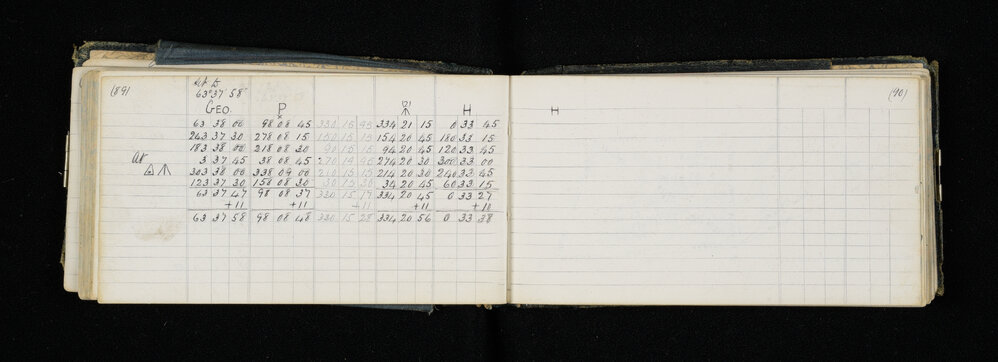 (89)
63°37'58"
GEO. P (2) H
63 38 00 98 08 45 330 15 45 334 21 15 0 33 45
243 37 30 278 08 15 150 15 15 154 20 45 180 33 15
183 38 00 218 08 30 90 15 15 94 20 45 120 33 45
3 37 45 38 08 45 274 20 30 300 33 00
303 38 00 338 09 00 210 15 15 214 20 30 240 33 45
123 37 30 158 08 30 30 15 30 34 20 45 60 33 15
63 37 47 98 08 37 330 15 17 334 20 45 0 33 27
+11 +11 +11 +11 +11
63 37 58 98 08 48 330 15 28 334 20 56 0 33 38
At
H
(90)